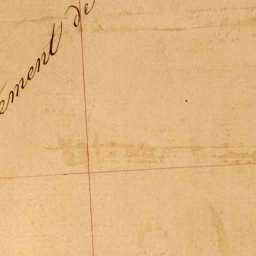 ement de